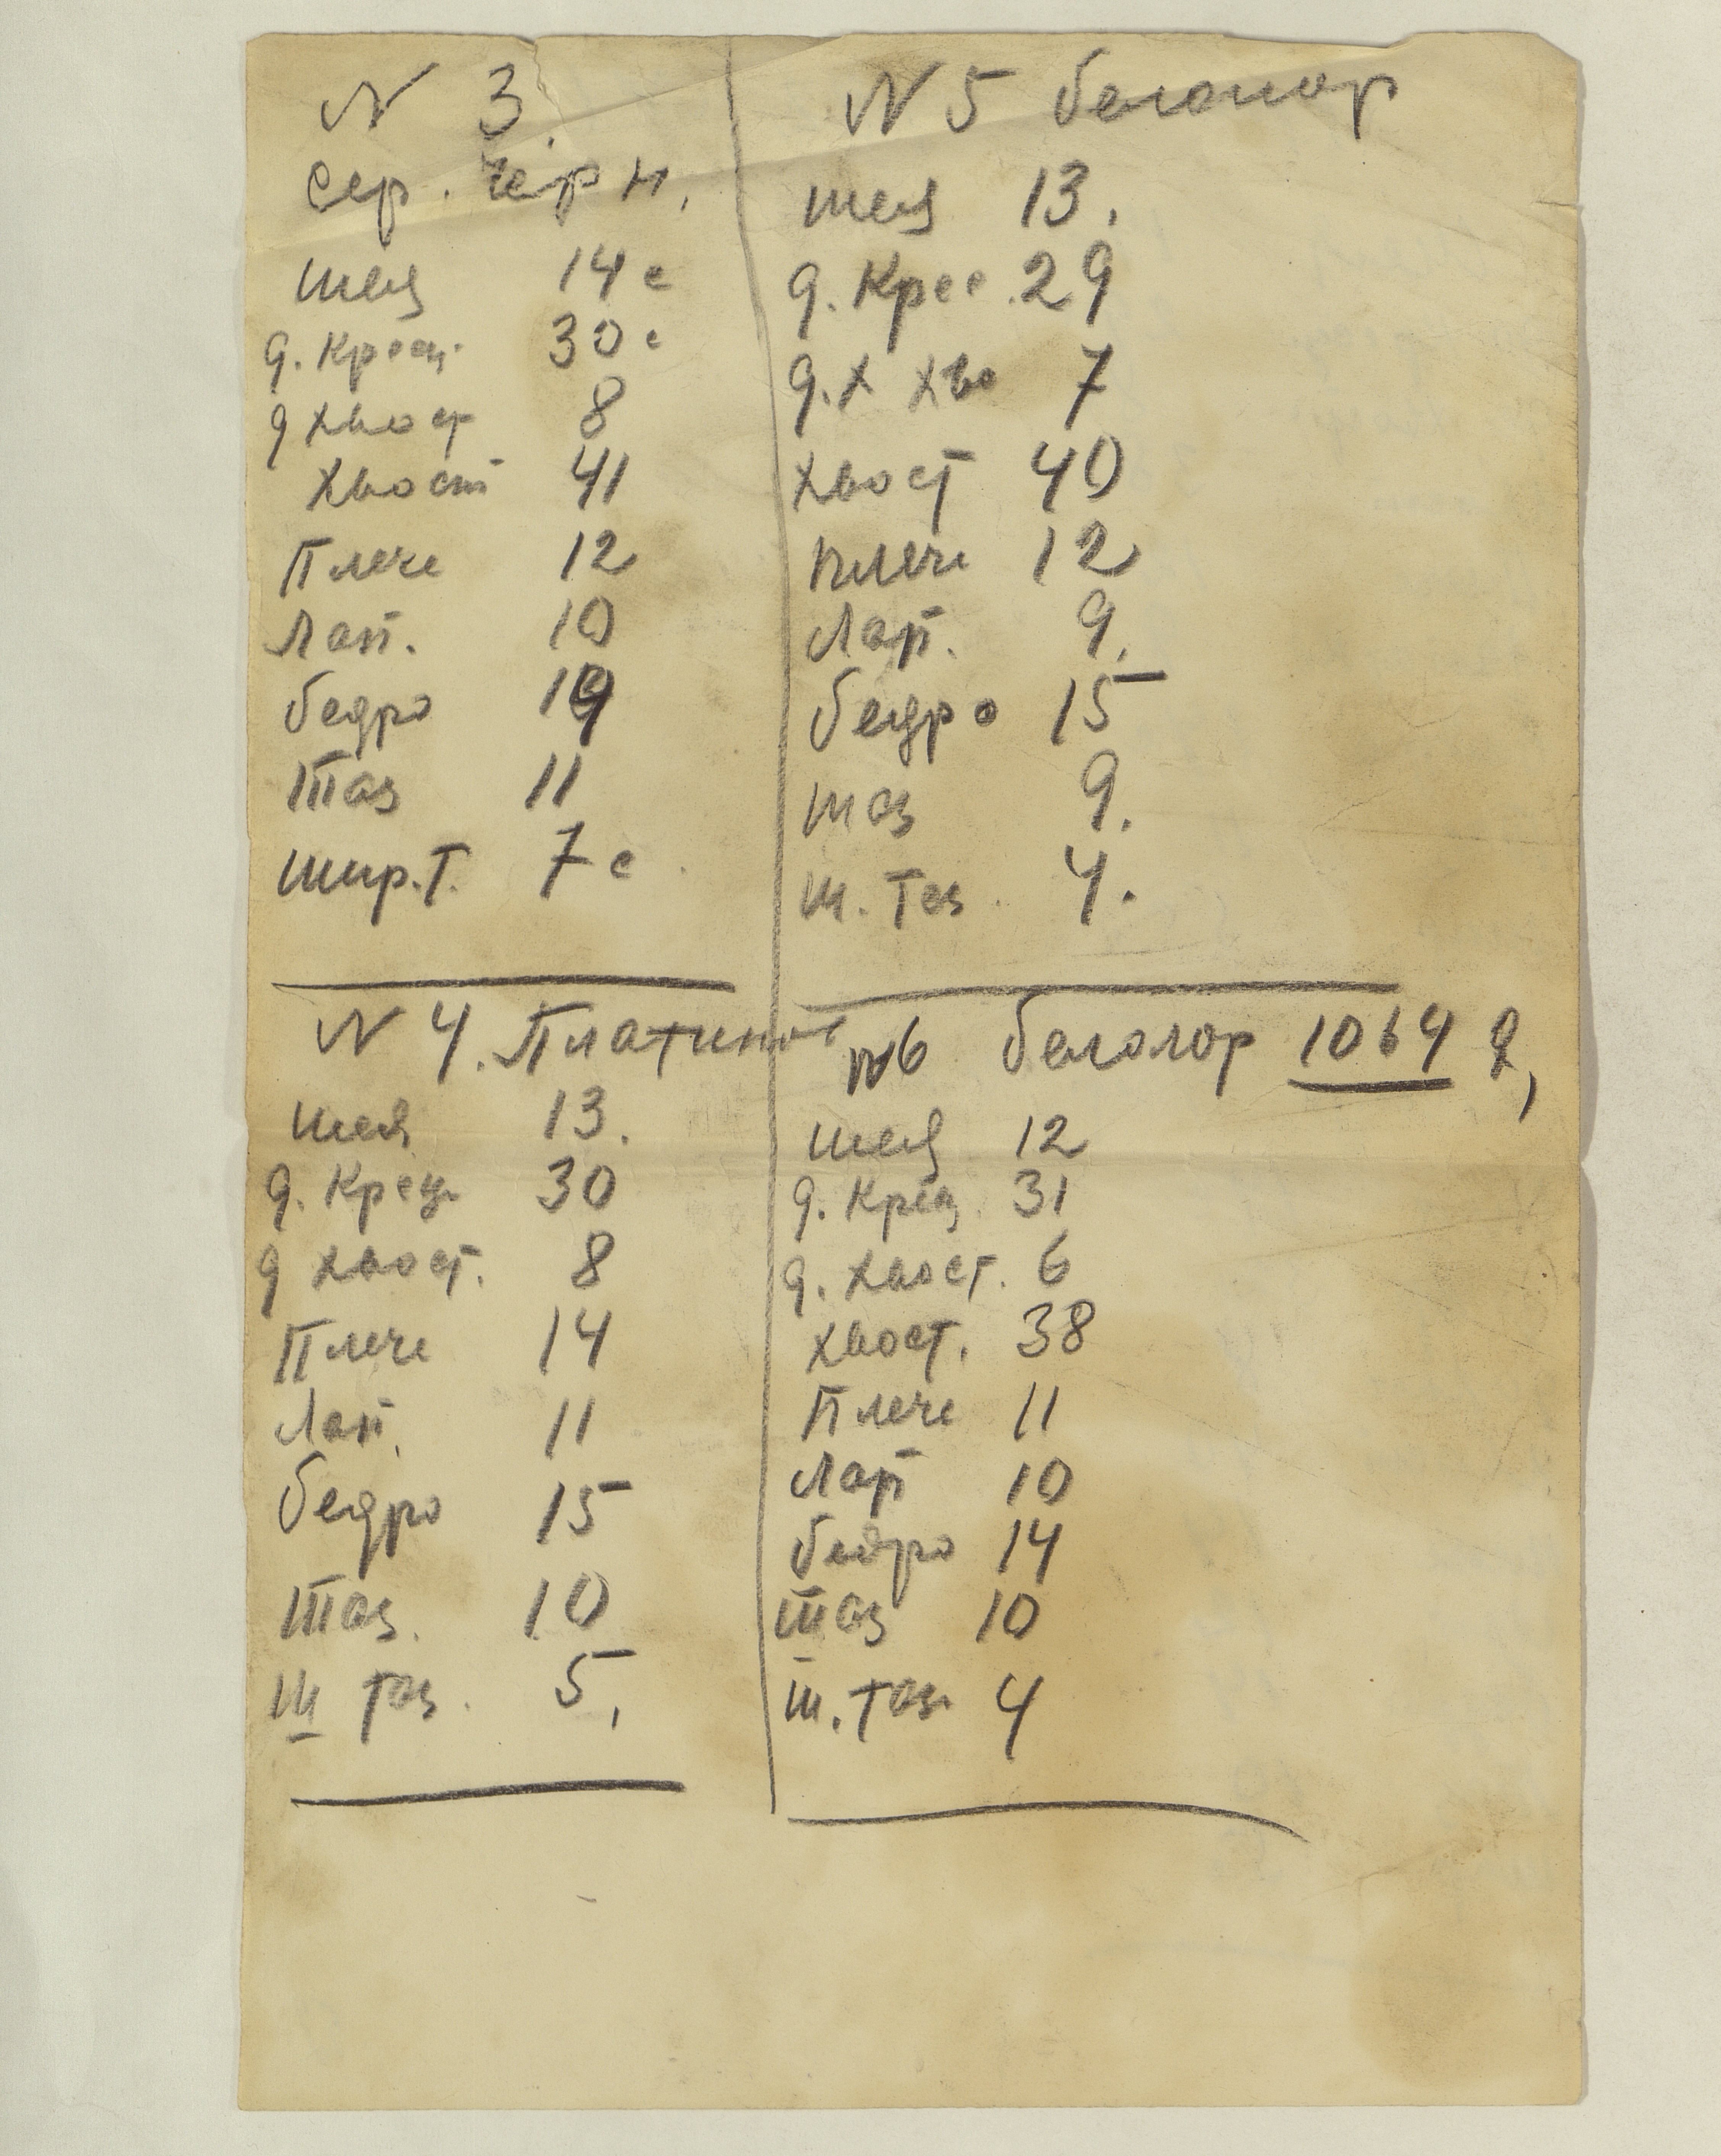 N 3.
сер. черн.
шея 14 с
д. Крест 30 с
д хвост 8
Хвост 41
Плече 12
Лап. 10
бедро
Таз 11
шир. Т. 7 с
N 4. Платинов
шея 13.
д. Крец 30
д хвост. 8
Плече 14
Лап. 11
бедро 15
Таз. 10
ш таз. 5,
N 5 беломор
шея 13.
д. Крес. 29
д. х хво 7
хвост 40
плече 12
Лап. 9.
бедро 15
таз 9.
ш. Таз. 4.
N6 беломор 1064 д,
шея 12
д. Крец. 31
д. хвост. 6
хвост. 38
Плече 11
Лап 10
бедро 14
Таз 10
ш. таз 4